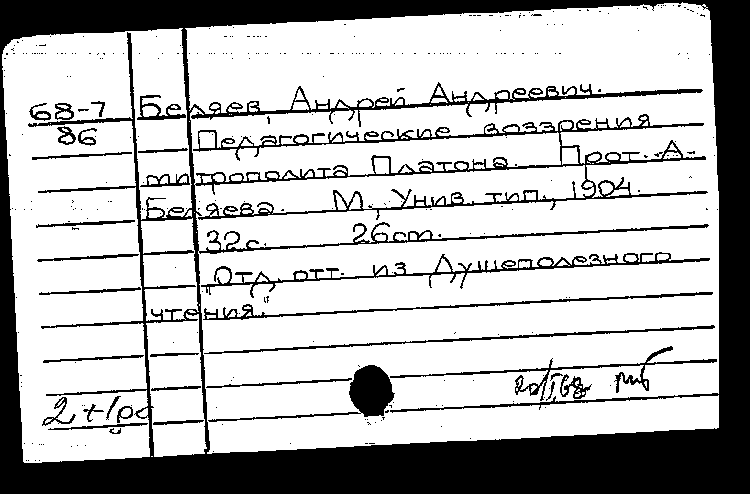 68-7 Беляев, Андрей Андреевич.
86 Педагогические воззрения
митрополита Платона. Прот. А.
Беляева. М., Унив. тип., 1904.
32с. 26cm.
"Отд. отт. из Душеполезного
чтения."
20/I68
2+1